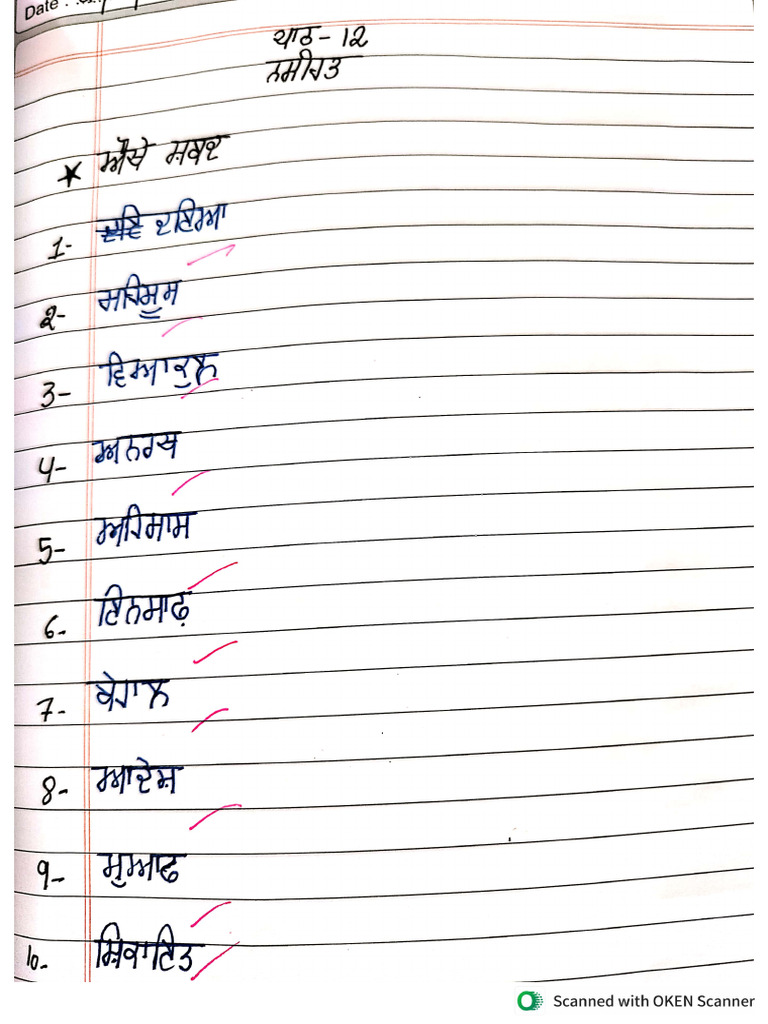 Date :
ਪਾਠ - 12
ਨਸੀਹਤ
★ ਔਖੇ ਸ਼ਬਦ
1- ਦਇਆ
2- ਮਹਿਸੂਸ
3- ਵਿਆਕੁਲ
4- ਅਨਰਥ
5- ਅਹਿਸਾਸ
6- ਇਨਸਾਫ਼
7- ਬੇਹਾਲ
8- ਆਦੇਸ਼
9- ਮੁਆਫ
10- ਸ਼ਿਕਾਇਤ
Scanned with OKEN Scanner